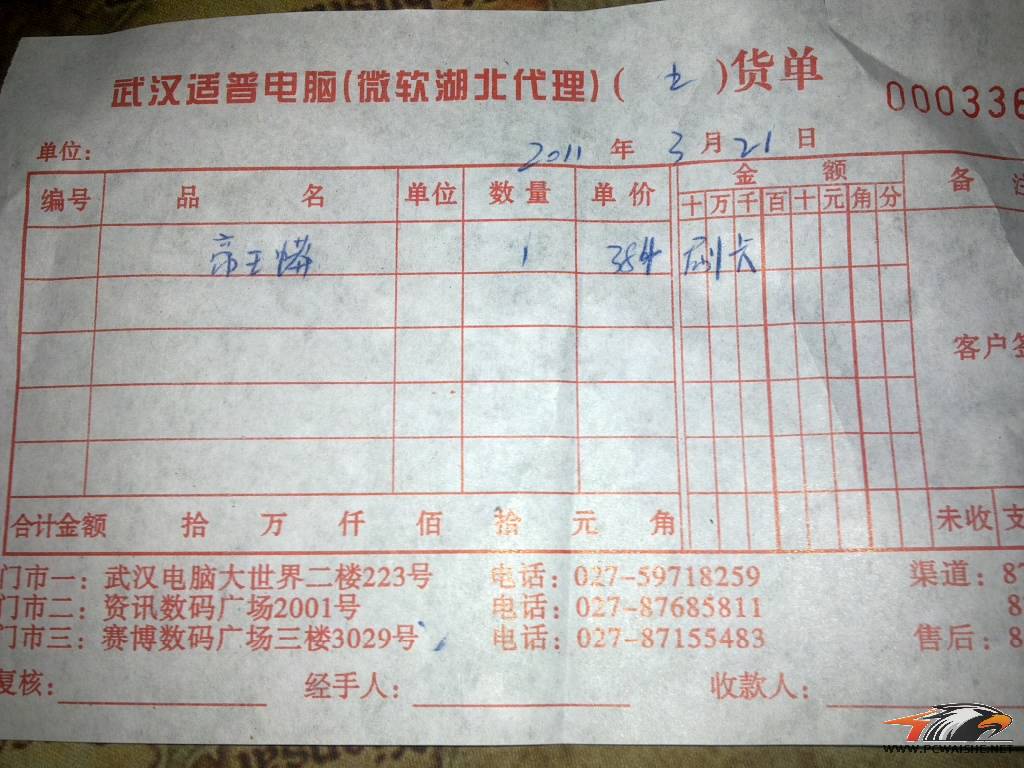 武汉适普电脑(微软湖北代理)( 出 )货单
000336
单位: 2011 年 3 月 21 日
编号 品 名 单位 数量 单价 金 额 备 注
十 万 千 百 十 元 角 分
帝王蟒 1 354 刷卡
客户签
合计金额 拾 万 仟 佰 拾 元 角 未收 支
门市一: 武汉电脑大世界二楼223号 电话: 027-59718259 渠道: 87
门市二: 资讯数码广场2001号 电话: 027-87685811 8
门市三: 赛博数码广场三楼3029号 电话: 027-87155483 售后: 8
复核: 经手人: 收款人:
WWW.PCWAISHE.NET